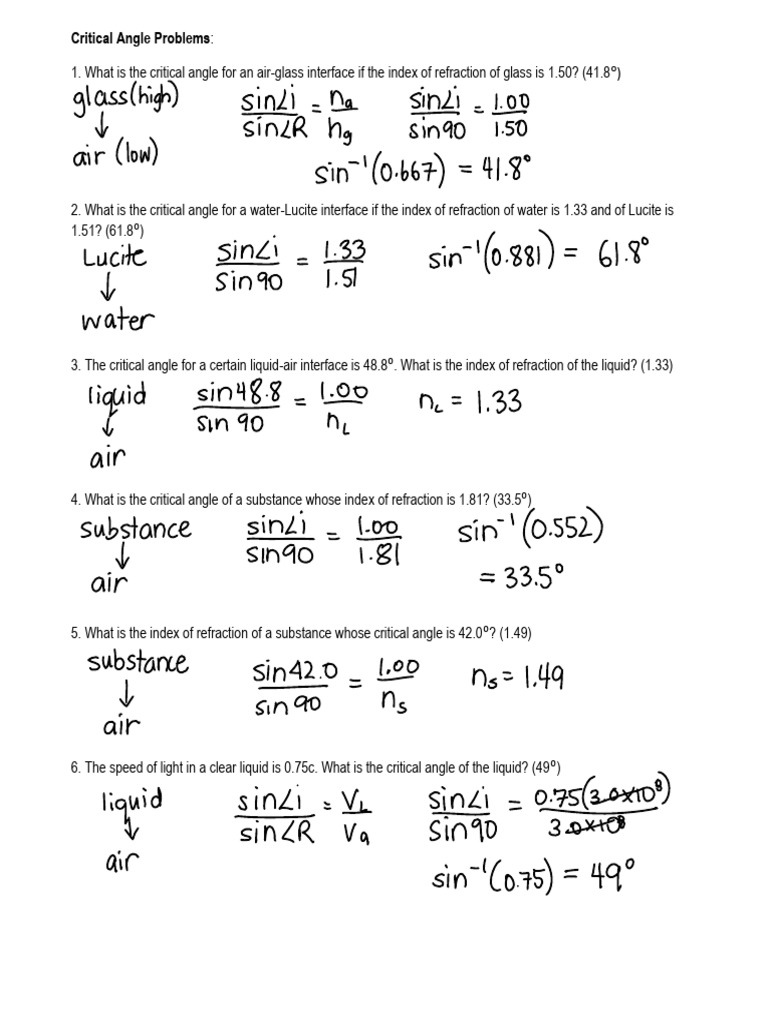 Critical Angle Problems:
1. What is the critical angle for an air-glass interface if the index of refraction of glass is 1.50? (41.8º)
glass(high)
↓
air (low)
sin∠i/sin∠R = na/ng
sin∠i/sin90 = 1.00/1.50
sin⁻¹(0.667) = 41.8°
2. What is the critical angle for a water-Lucite interface if the index of refraction of water is 1.33 and of Lucite is
1.51? (61.8º)
Lucite
↓
water
sin∠i/sin90 = 1.33/1.51
sin⁻¹(0.881) = 61.8°
3. The critical angle for a certain liquid-air interface is 48.8º. What is the index of refraction of the liquid? (1.33)
liquid
↓
air
sin48.8/sin 90 = 1.00/nL
nL = 1.33
4. What is the critical angle of a substance whose index of refraction is 1.81? (33.5º)
substance
↓
air
sin∠i/sin90 = 1.00/1.81
sin⁻¹(0.552)
= 33.5°
5. What is the index of refraction of a substance whose critical angle is 42.0º? (1.49)
substance
↓
air
sin42.0/sin 90 = 1.00/ns
ns = 1.49
6. The speed of light in a clear liquid is 0.75c. What is the critical angle of the liquid? (49º)
liquid
↓
air
sin∠i/sin∠R = VL/Va
sin∠i/sin90 = 0.75(3.0x10⁸)/3.0x10⁸
sin⁻¹(0.75) = 49°